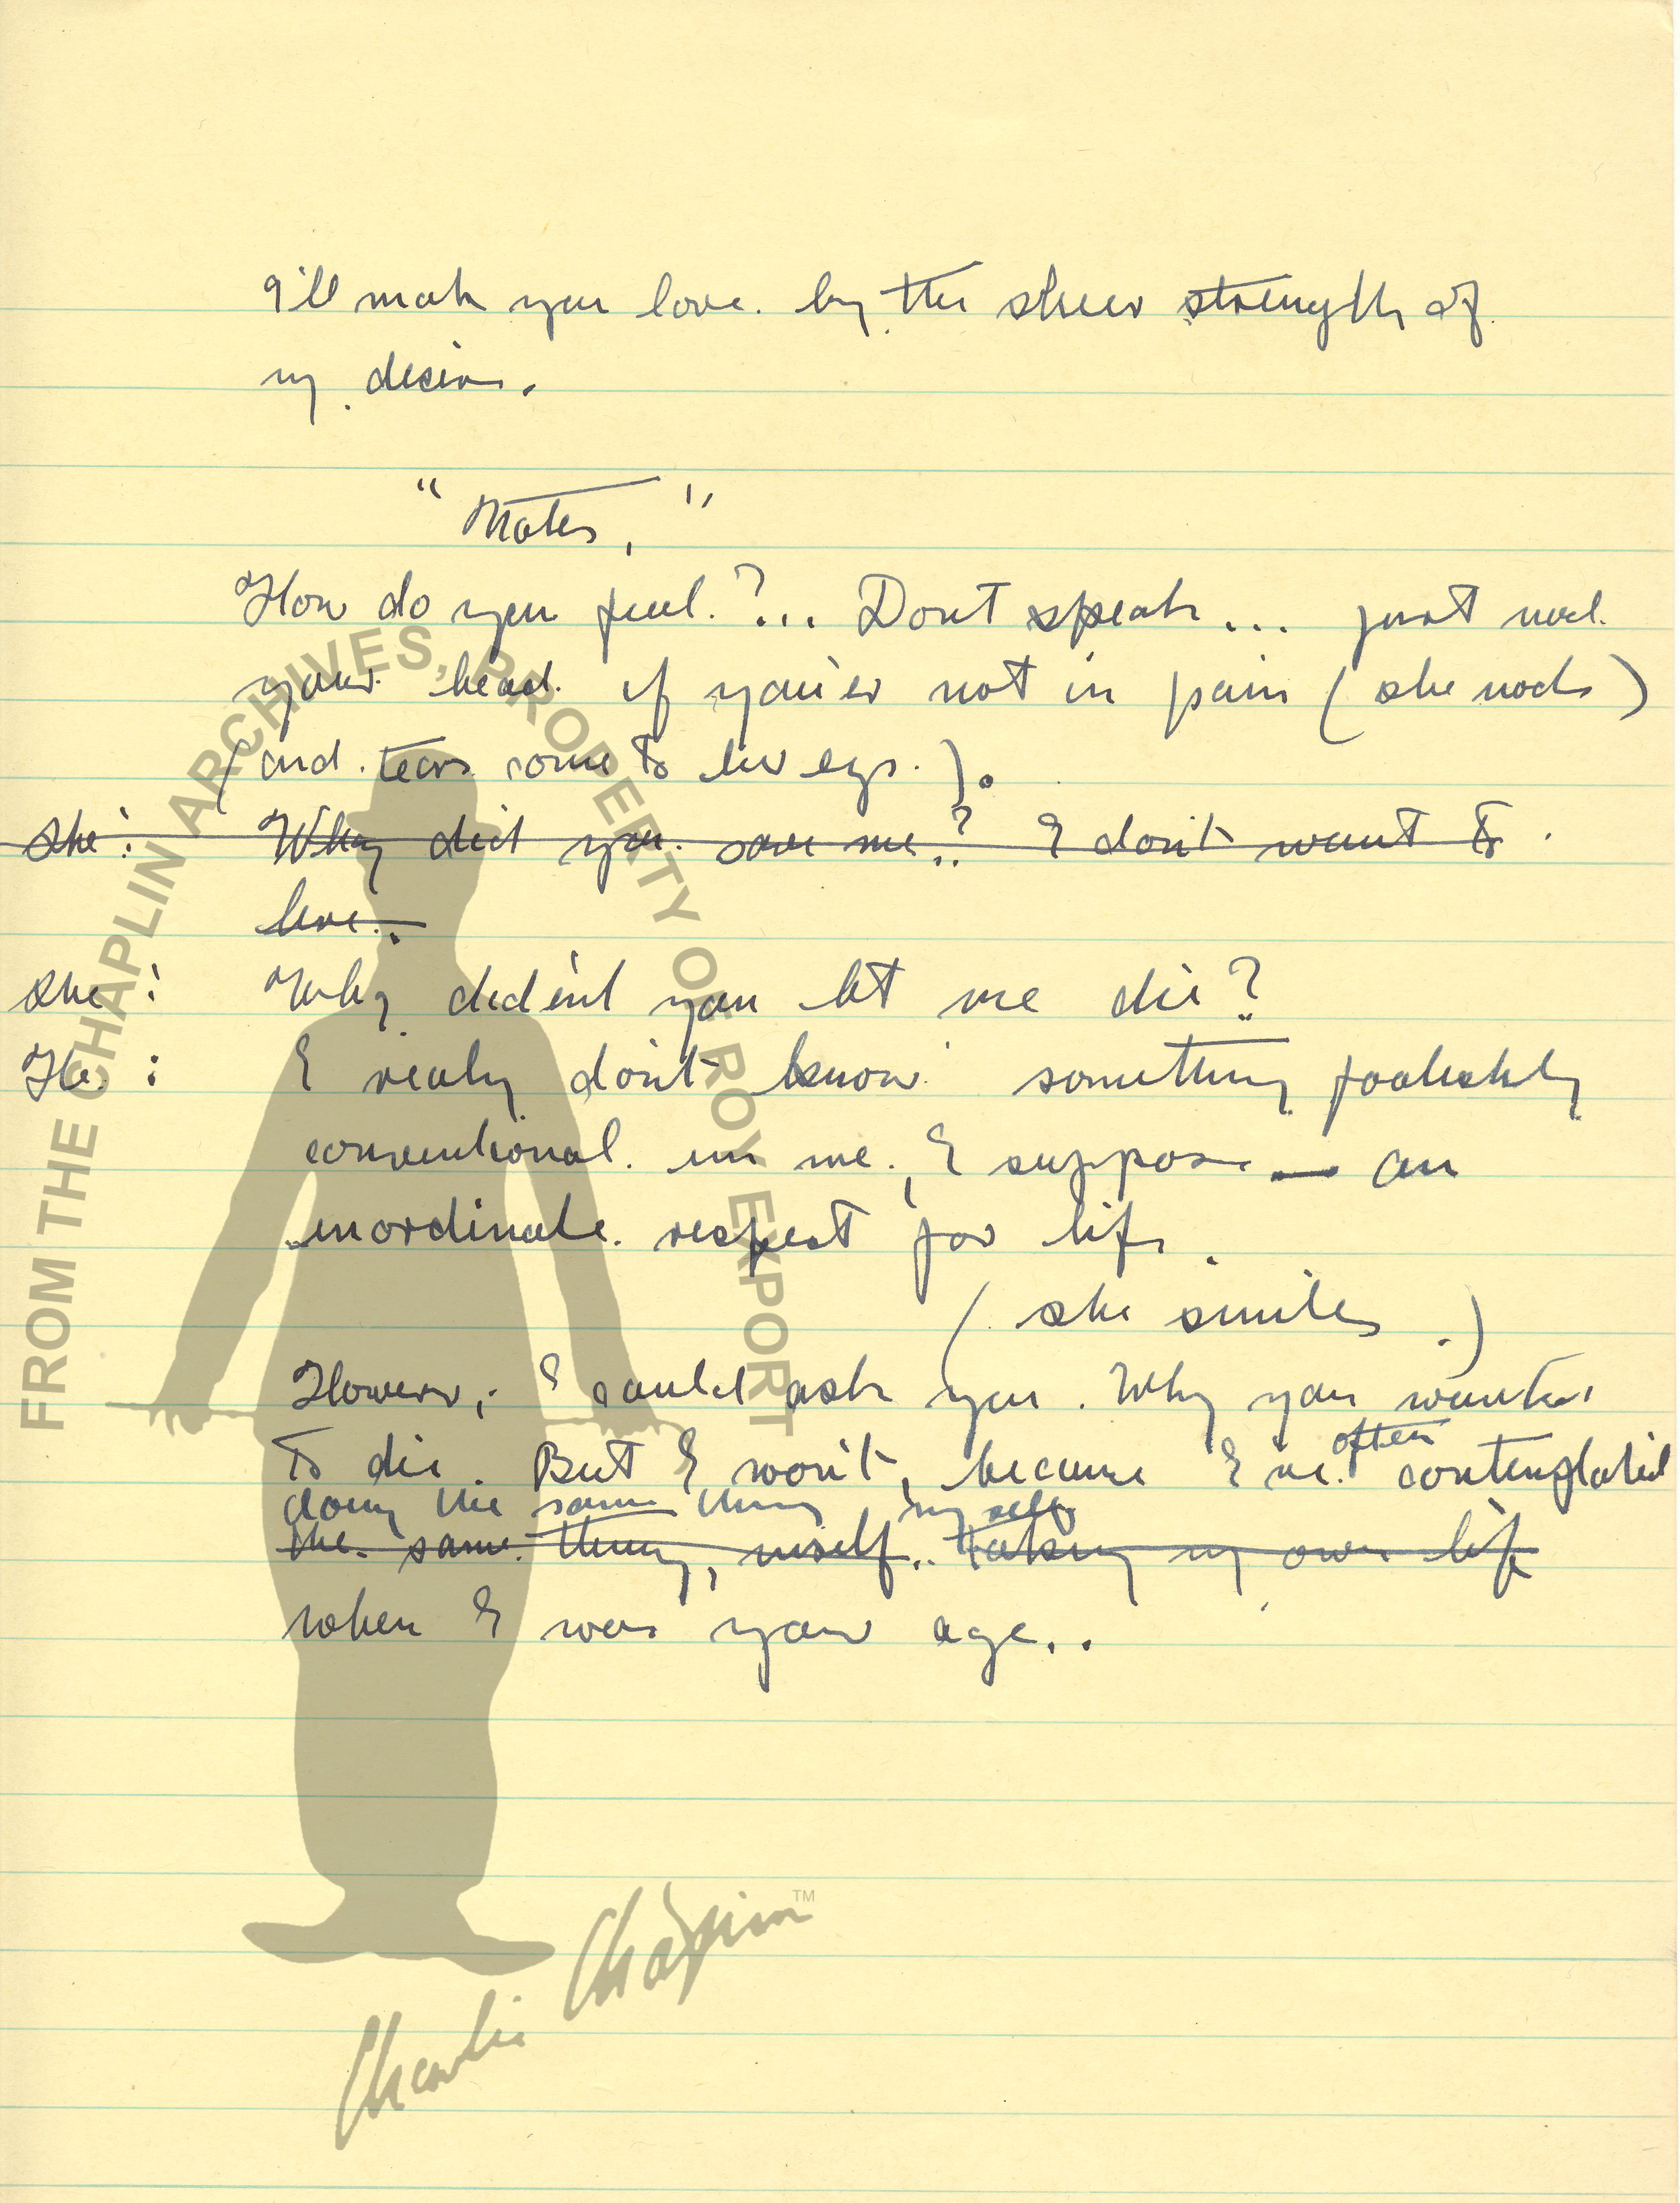 I'll make you love. by the sheer strength of
my desire.
"Notes,"
How do you feel.?... Dont speak... just nod.
your head. if you'er not in pain (she nods)
(and. tears come to her eyes.).
She: Why did you. save me.? I don't want to
live..
She: Why did'ent you let me die?
He: I realy don't know something foolishly
conventional. in me, I suppose — an
inordinate. respect for life.
(she smiles.)
However, I could ask you. Why you wanted
to die. But I won't, because I've. often contemplated
doing the same thing myself
the. same. thing, myself.. taking my own life
when I was your age..
FROM THE CHAPLIN ARCHIVES, PROPERTY OF ROY EXPORT
Charlie Chaplin™